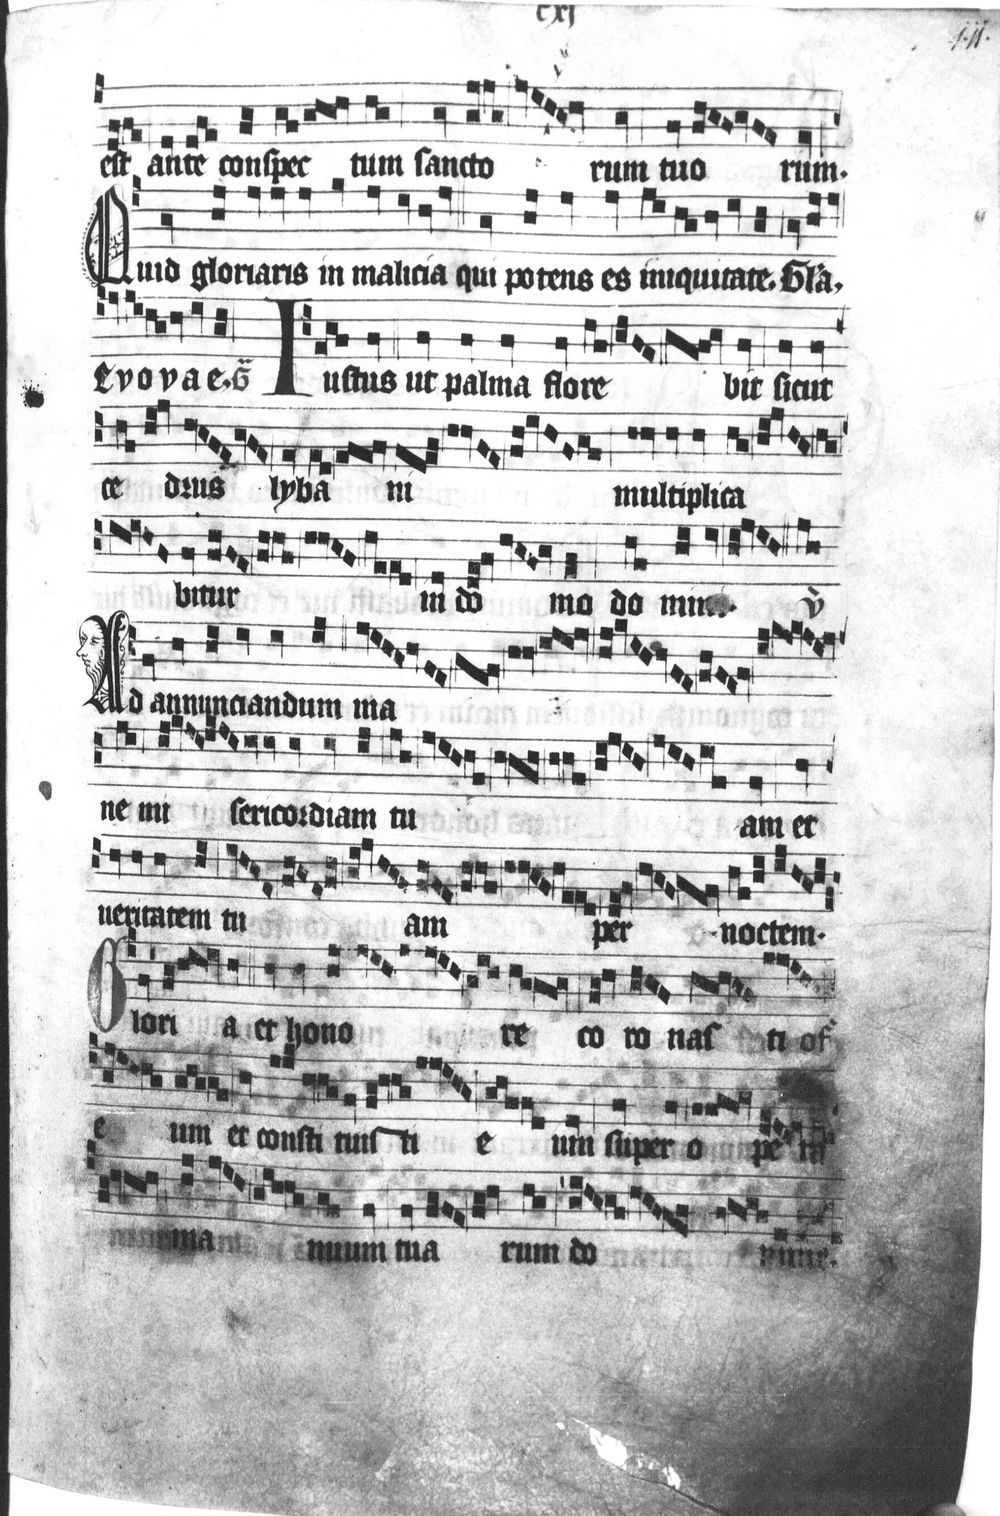 cxj
est ante conspec tum sancto rum tuo rum.
Quid gloriaris in malicia qui potens es iniquitate. Gl'a,
Evovae. G Iustus ut palma flore bit sicut
ce drus lyba ni multiplica
bitur in do mo do mini. v̄
Ad annunciandum ma
ne mi sericordiam tu am et
ueritatem tu am per noctem.
Glori a et hono re co ro nas ti os
e um et consti tuis ti e um super o pe ra
ma nuum tua rum do mine.